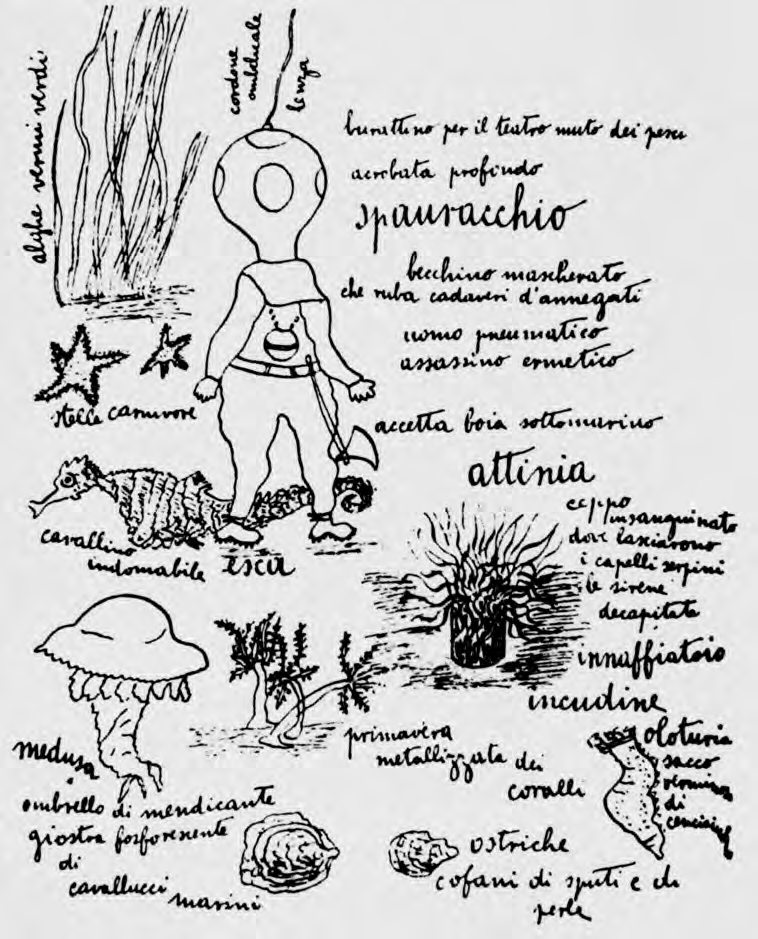 alghe vermi verdi
cordone
ombelicale
lenza
burattino per il teatro muto dei pesci
acrobata profondo
spauracchio
becchino mascherato
che ruba cadaveri d'annegati
uomo pneumatico
assassino ermetico
stelle carnivore
accetta boia sottomarino
attinia
ceppo
insanguinato
dove lasciarono
i capelli serpini
le sirene
decapitate
cavallino
indomabile
esca
innaffiatoio
incudine
primavera
metallizzata dei
coralli
oloturia
sacco
verminoso
di
medusa
ombrello di mendicante
giostra fosforescente
di
cavallucci
marini
ostriche
cofani di sputi e di
perle